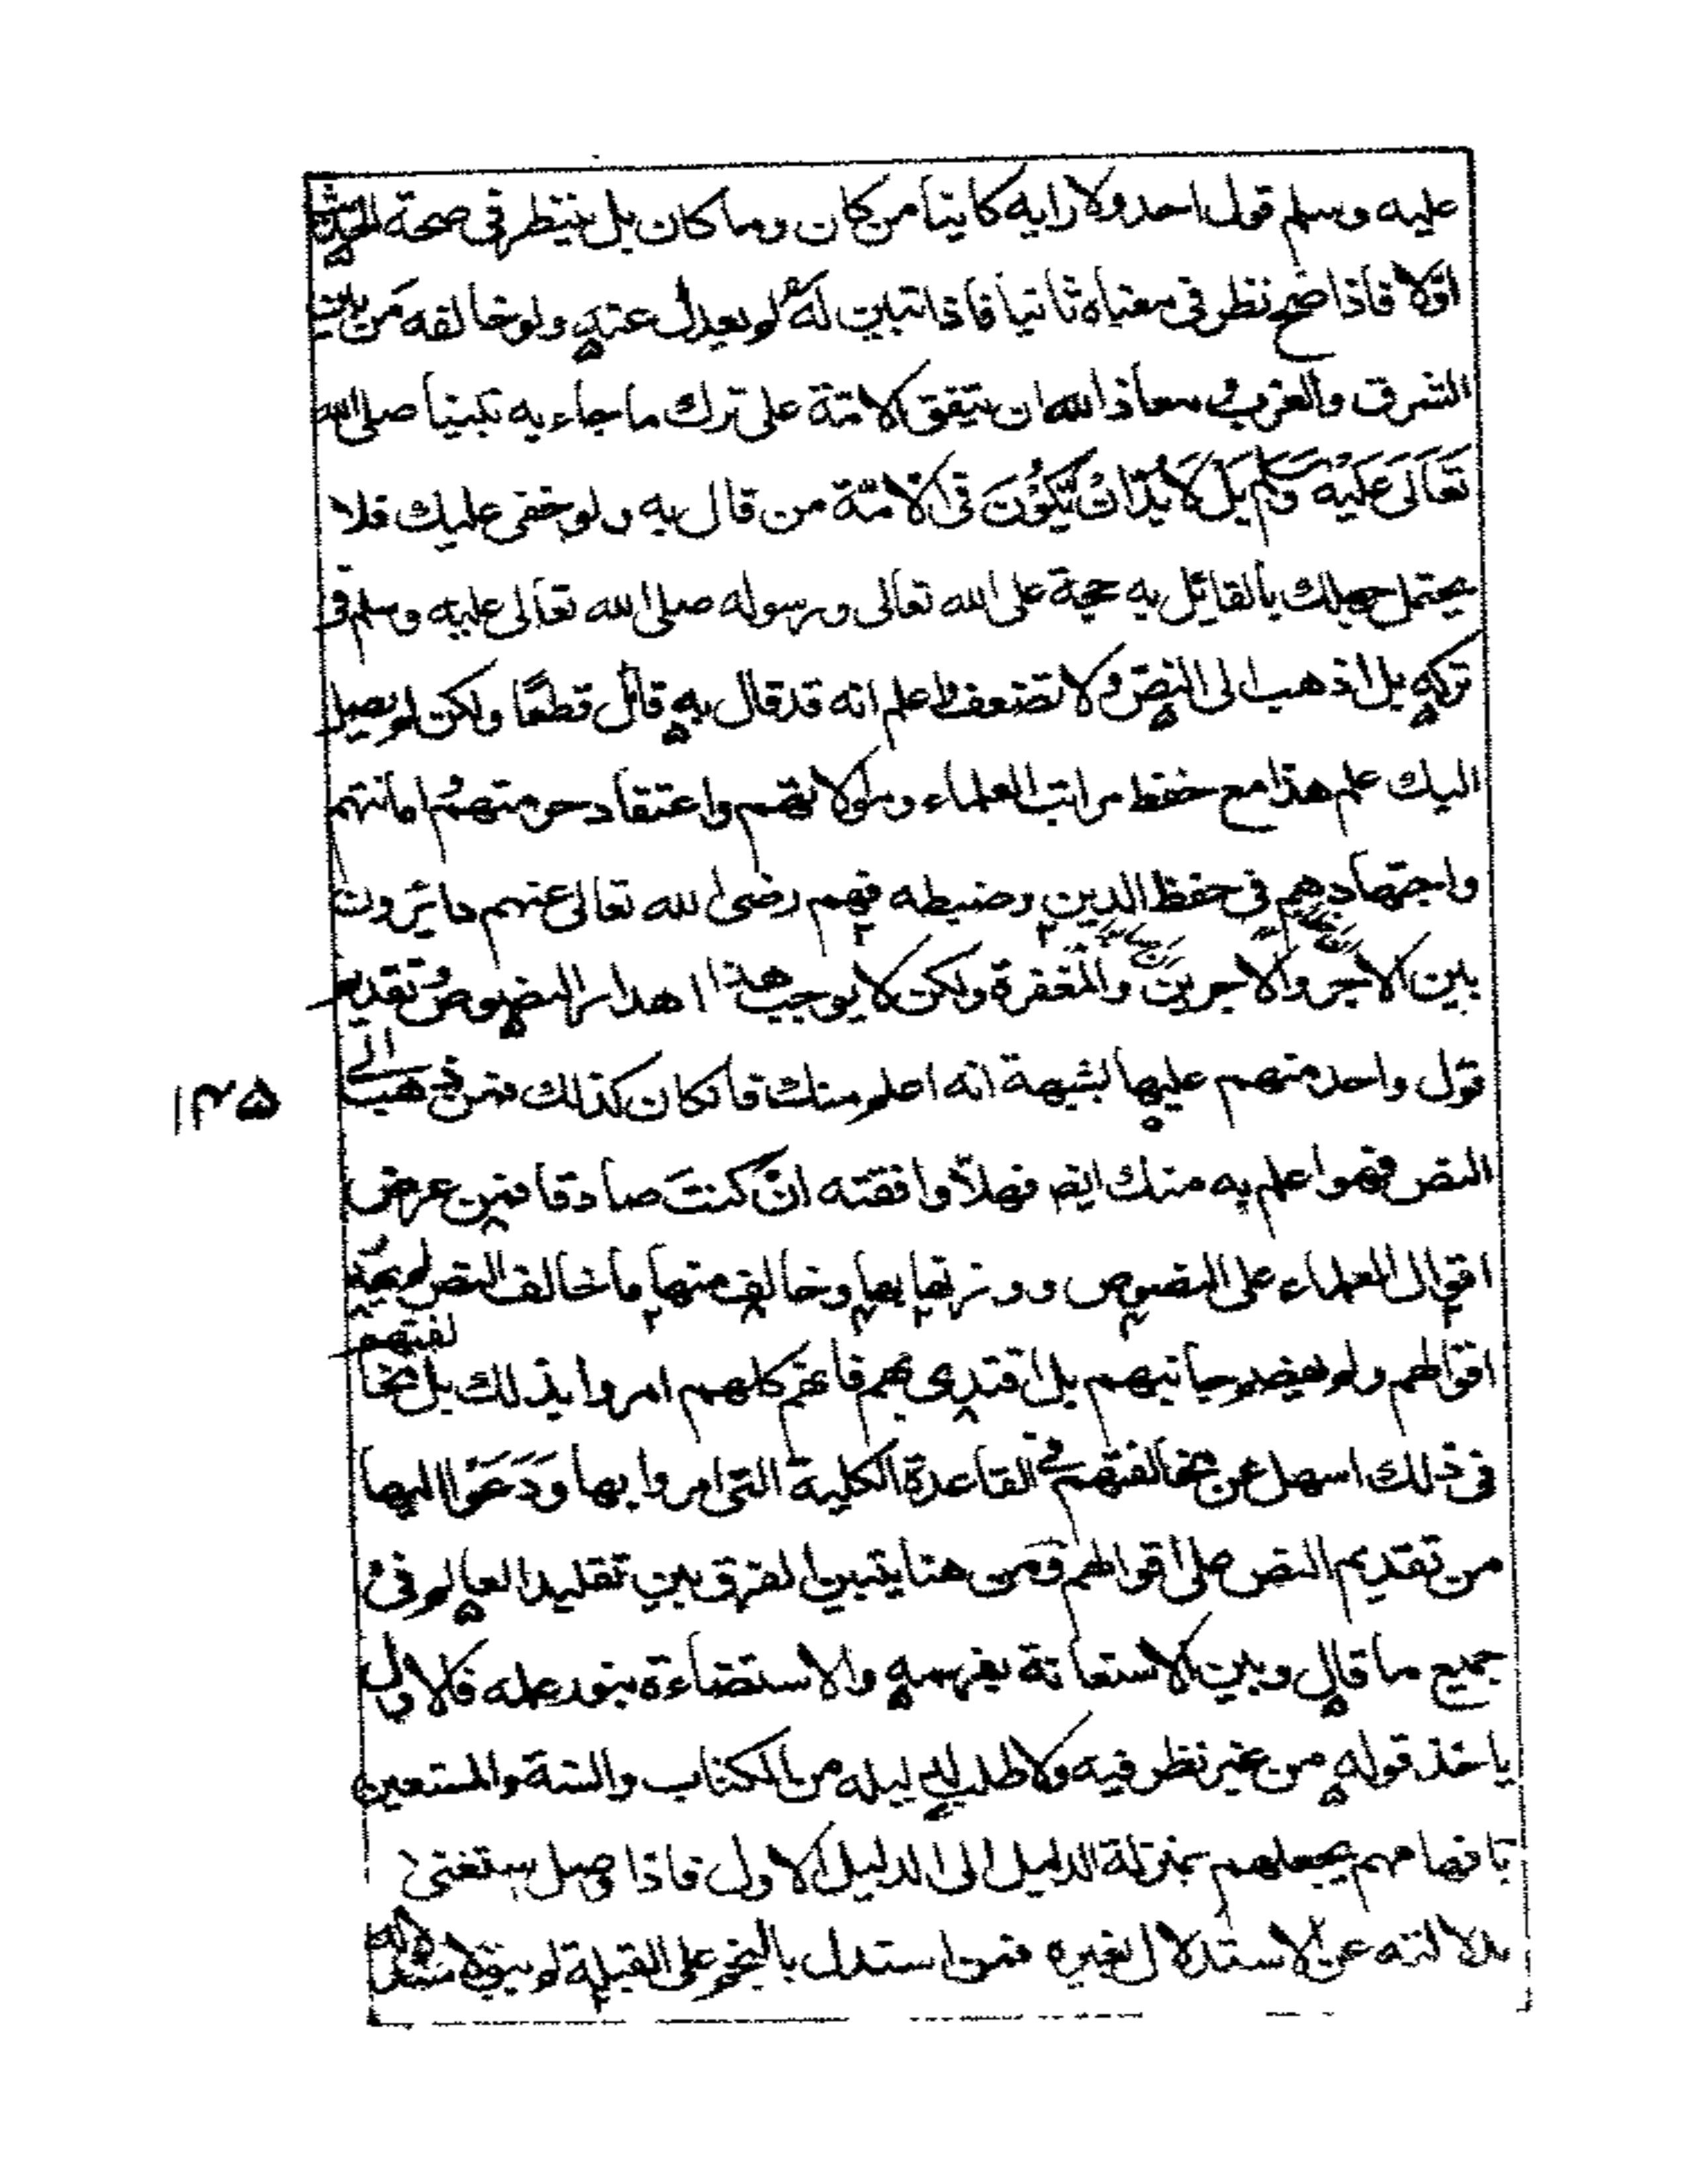 عليه وسلم قول احد ولا رايه كاينا من كان وما كان بل ينظر في صحة الحديث
اولا فاذا صح نظر في معناه ثانيا فاذا تبين له لم يعدل عنه ولو خالفه من بين
الشرق والغرب معاذ الله ان يتفق الامة على ترك ما جاء به نبينا صلى الله
تعالى عليه وسلم بل لا بد ان يكون في الامة من قال به ولو خفى عليك فلا
يحتمل جهلك بالقائل به حجة على الله تعالى ورسوله صلى الله تعالى عليه وسلم في
تركه بل اذهب الى النص ولا تضعف واعلم انه قد قال به قائل قطعًا ولكن لم يصل
اليك علم هذا مع حفظ مراتب العلماء وموالاتهم واعتقاد حرمتهم وامانتهم
واجتهادهم في حفظ الدين وضبطه فهم رضى الله تعالى عنهم دائرون
بين الاجر والاجرين والمغفرة ولكن لا يوجب هذا اهدار النصوص وتقديم
قول واحد منهم عليها بشبهة انه اعلم منك فان كان كذلك فمن ذهب الى
١٢٥
النص فهو اعلم به منك ايضا فهلا وافقته ان كنت صادقا فمن عرض
اقوال العلماء على النصوص ووزنها بها وخالف منها ما خالف النص لم يهدر
اقوالهم ولم يهضم جانبهم بل اقتدى بهم فانهم كلهم امروا بذلك بل مخالفتهم
في ذلك اسهل من مخالفتهم في القاعدة الكلية التي امروا بها ودعوا اليها
من تقديم النص على اقوالهم ومن هنا يتبين الفرق بين تقليد العالم في
جميع ما قال وبين الاستعانة بفهمه والاستضاءة بنور علمه فالاول
ياخذ قوله من غير نظر فيه ولا طلب لدليله من الكتاب والسنة والمستعين
بافهامهم يجعلهم بمنزلة الدليل الى الدليل الاول فاذا وصل يستغنى
بدلالته عن الاستدلال بغيره فمن استدل بالنجم على القبلة لم يبق لاستدلاله